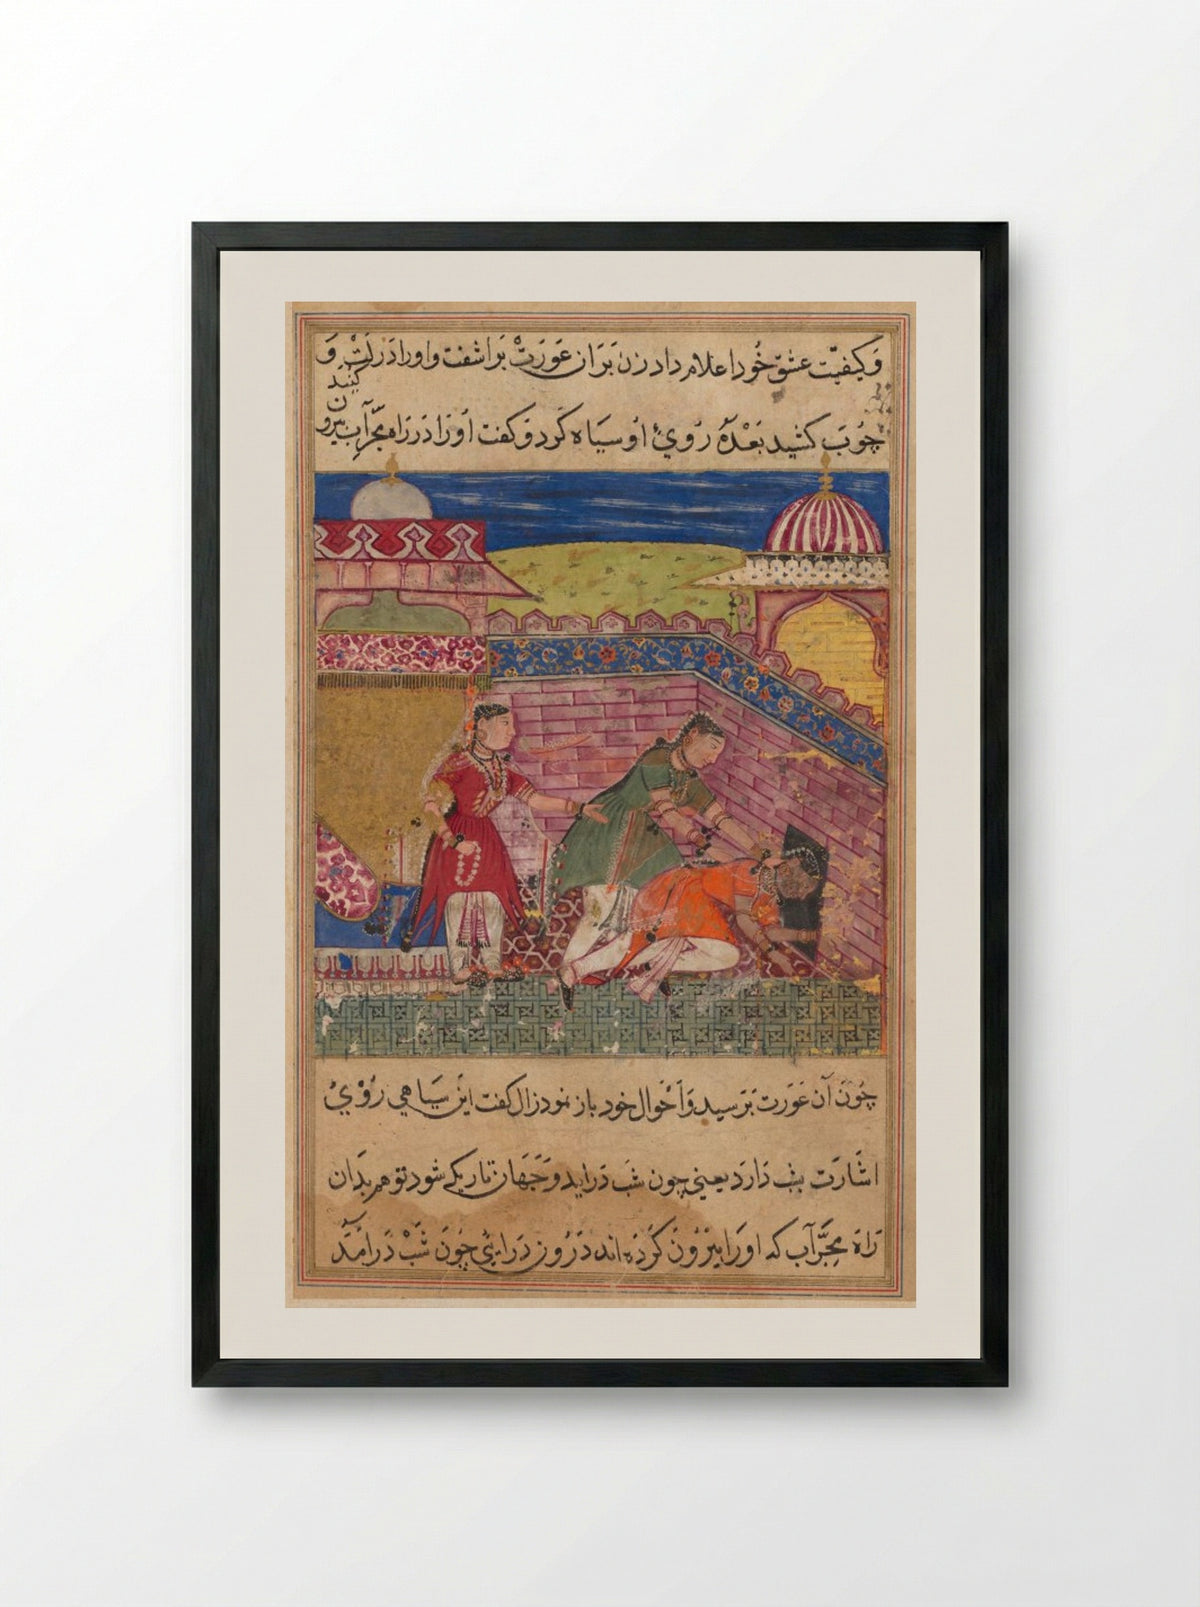 وَ کیفیّت عشق خُود اعلام داد زن بَران عَورَتْ بَراشفت و اورا دَر لَتْ وَ
چُوبَ کشید بَعْدَهُ رُویْ اُو سیَاه کَرد وَ کفت اُورَا دَر رَاه مجرَّ آب بیرون کنند
چُون آن عَورَت بَترسید وَ اَحْوَال خود باز نمود زال کفت این سیَاهی رُوْیْ
اشَارَت بشب دَارَد یعنی چون شَب دَراید وَ جَهَان تاریک شود تو هم بدَان
رَاهَ مجَرَّ آب که اورا بیرُونْ کَردَه اند دَرُون دَرایْی چُونَ شَبْ دَرآمَد